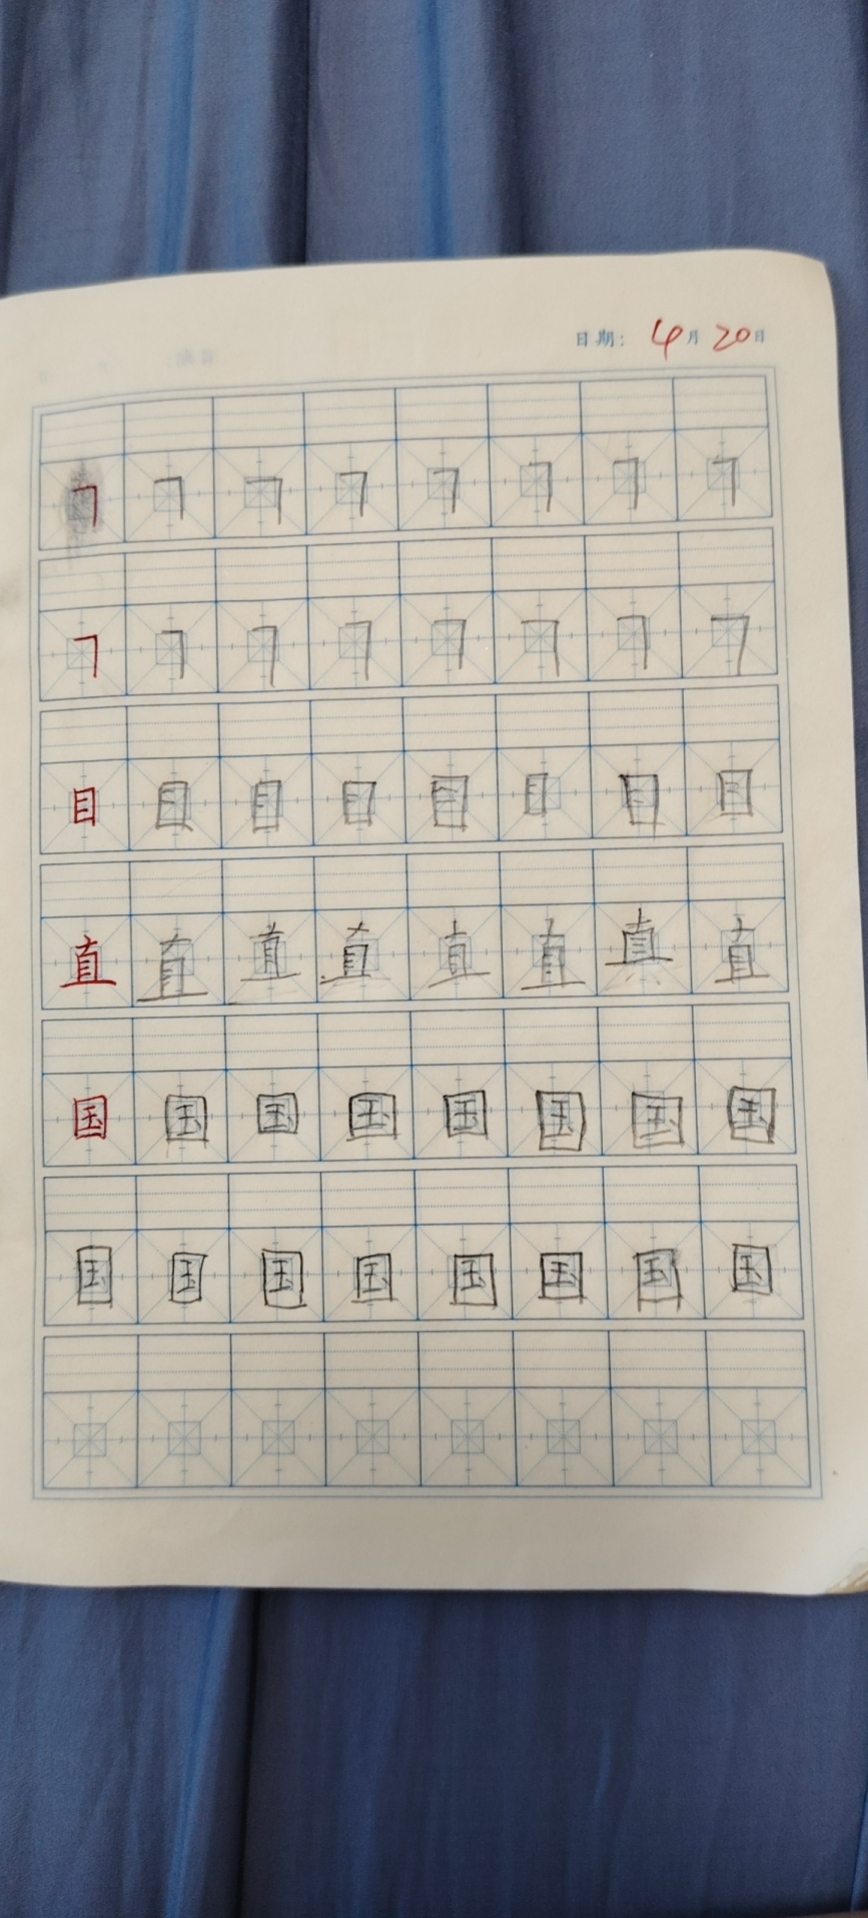 日期: 4月20日
㇕ ㇕ ㇕ ㇕ ㇕ ㇕ ㇕ ㇕
㇕ ㇕ ㇕ ㇕ ㇕ ㇕ ㇕ ㇕
目 目 目 目 目 目 目 目
直 直 直 直 直 直 直 直
国 国 国 国 国 国 国 国
国 国 国 国 国 国 国 国